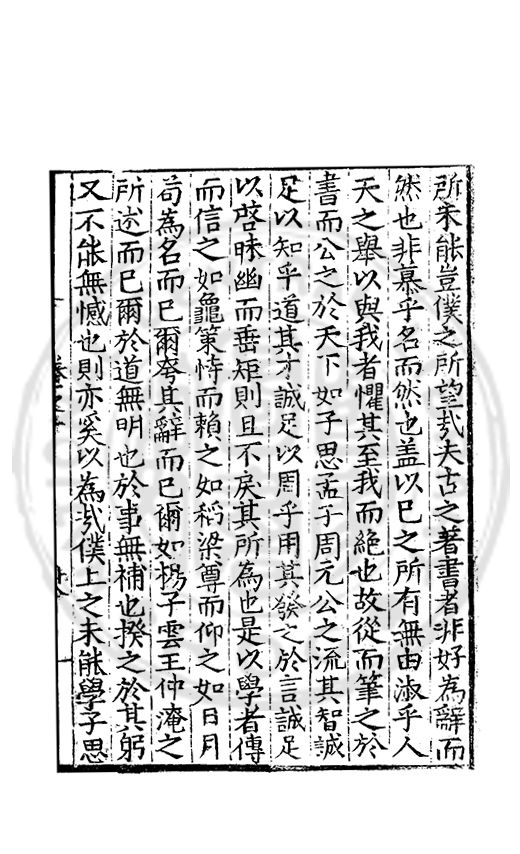 所未能豈僕之所望哉夫古之著書者非好為辭而
然也非慕乎名而然也盖以已之所有無由淑乎人
天之舉以與我者懼其至我而絕也故從而筆之於
書而公之於天下如子思孟子周元公之流其智誠
足以知乎道其才誠足以周乎用其發之於言誠足
以啓昧幽而垂矩則且不戾其所為也是以學者傳
而信之如龜筴恃而賴之如稻梁尊而仰之如日月
苟為名而已爾夸其辭而已爾如楊子雲王仲淹之
所述而已爾於道無明也於事無補也揆之於其躬
又不能無憾也則亦奚以為哉僕上之未能學子思